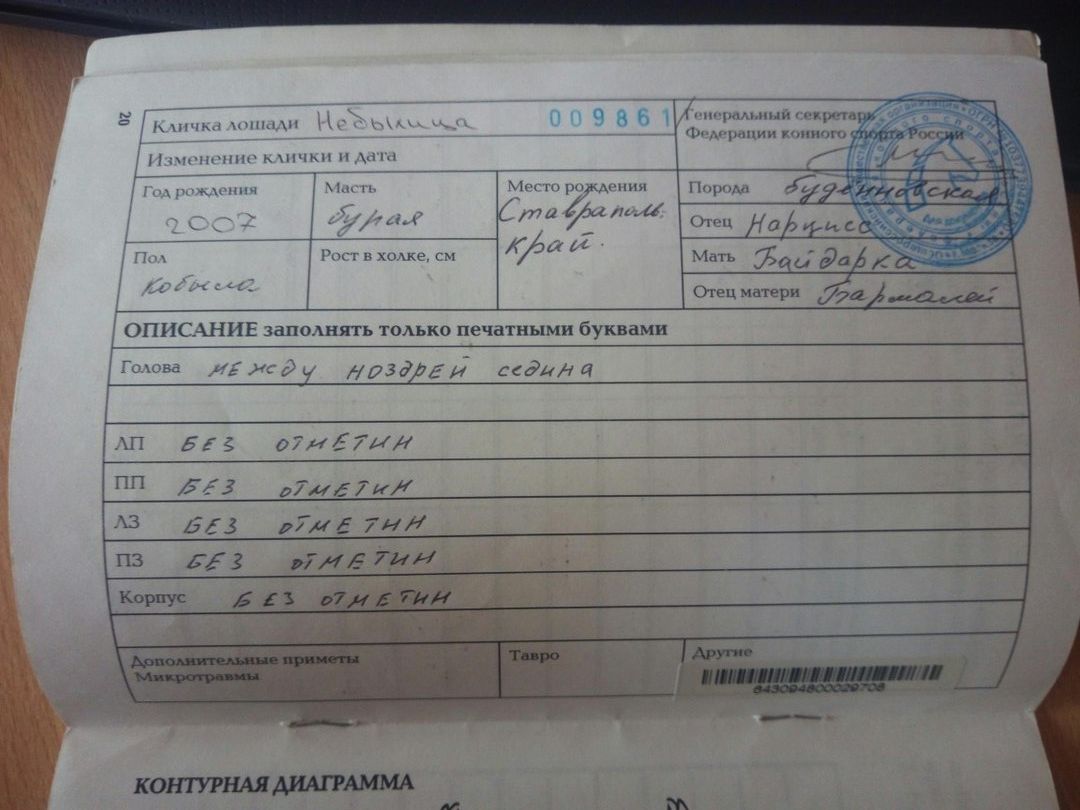 20
Кличка лошади Небылица 009861
Генеральный секретарь
Федерации конного спорта России
Изменение клички и дата
Год рождения
2007
Масть
бурая
Место рождения
Ставраполь.
край.
Порода буденновская
Отец Нарцисс
Мать Байдарка
Отец матери Бармалей
Пол
кобыла
Рост в холке, см
ОПИСАНИЕ заполнять только печатными буквами
Голова между НОЗДРЕЙ седина
ЛП БЕЗ ОТМЕТИН
ПП БЕЗ ОТМЕТИН
ЛЗ БЕЗ ОТМЕТИН
ПЗ БЕЗ ОТМЕТИН
Корпус БЕЗ ОТМЕТИН
Дополнительные приметы
Микротравмы
Тавро
Другие
643094800029708
КОНТУРНАЯ ДИАГРАММА